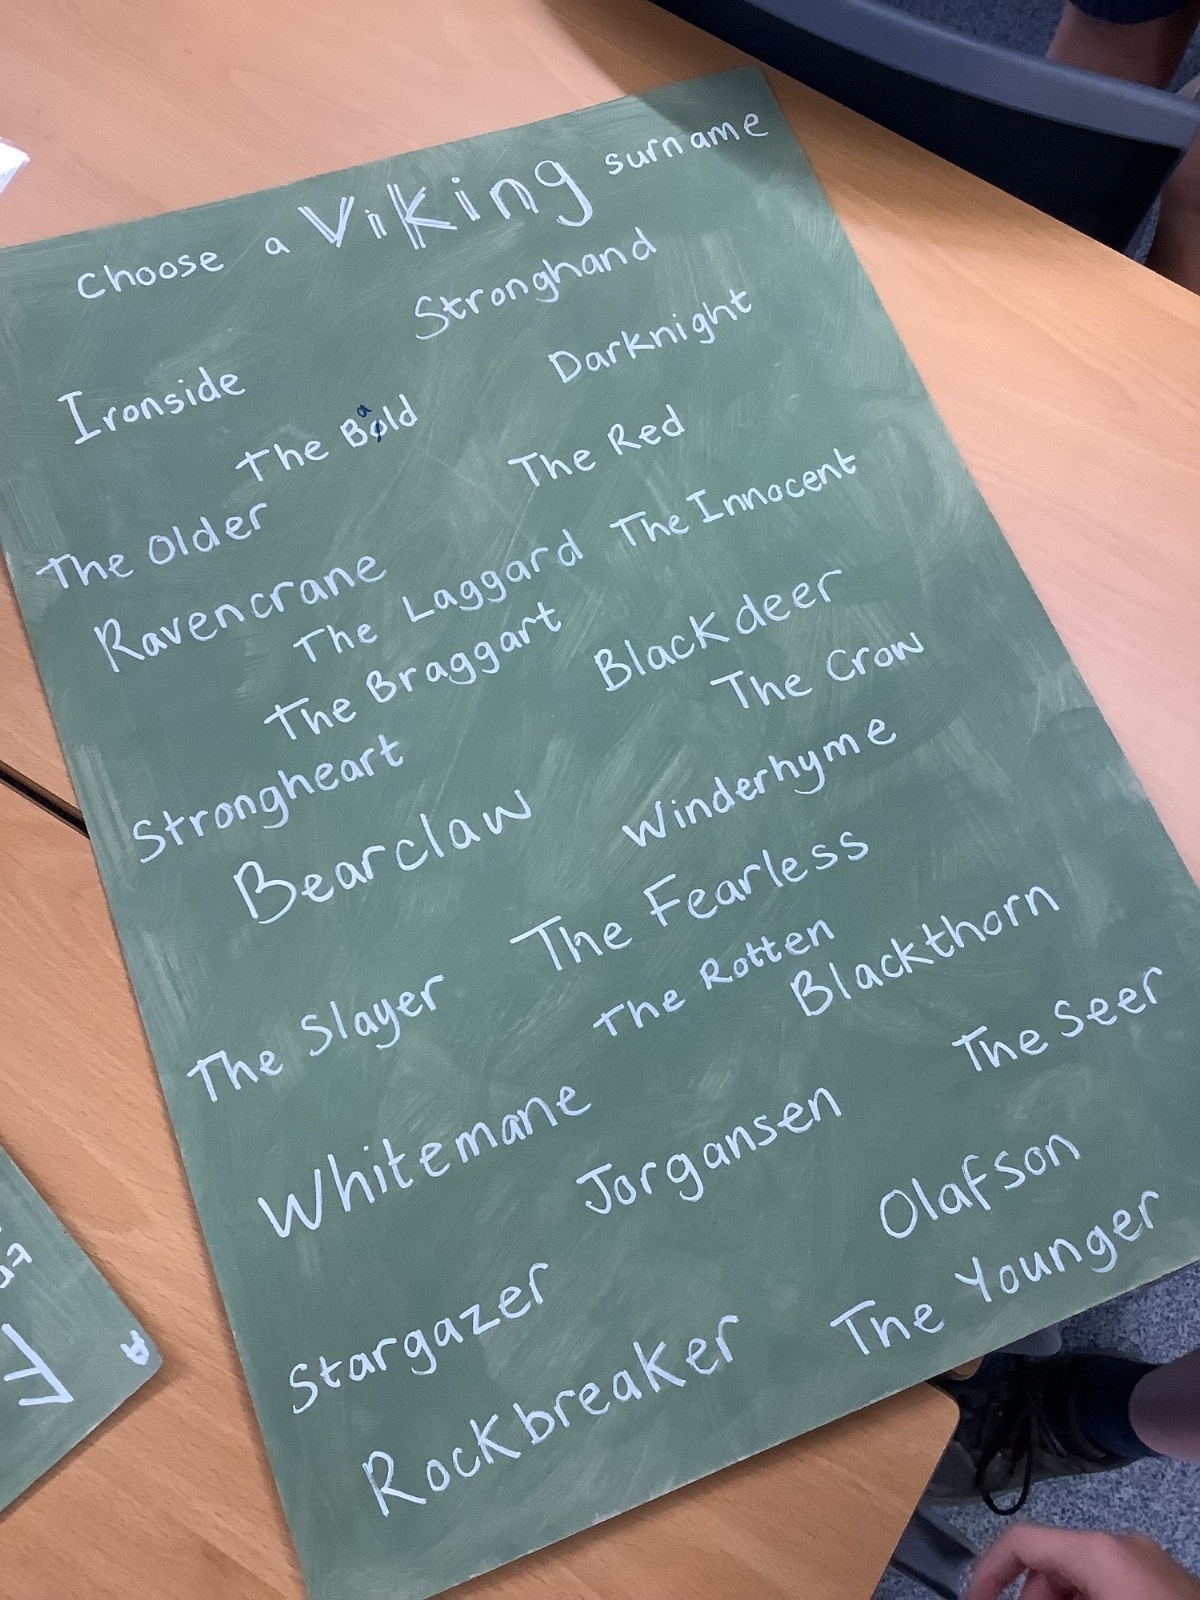 Choose a Viking surname
Stronghand
Ironside
Darknight
The Bald
The Red
The Older
The Innocent
Ravencrane
The Laggard
The Braggart
Blackdeer
The Crow
Strongheart
Winderhyme
Bearclaw
The Fearless
The Slayer
The Rotten
Blackthorn
The Seer
Whitemane
Jorgansen
Olafson
Stargazer
The Younger
Rockbreaker